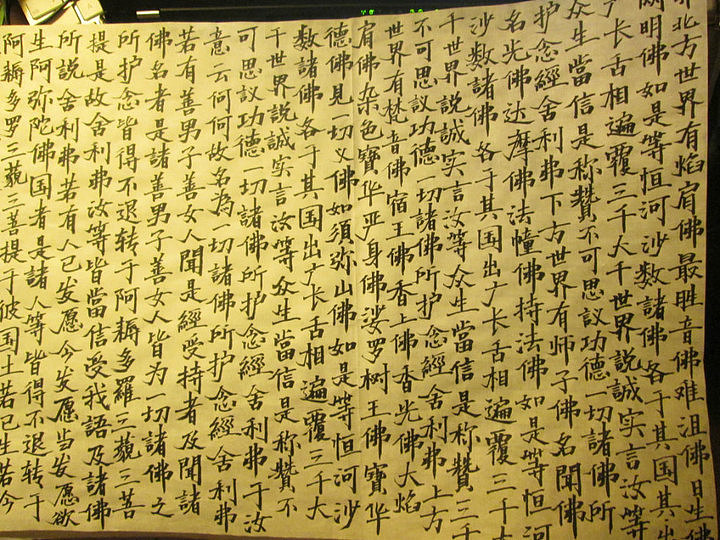 北方世界有焰肩佛最胜音佛难沮佛日生佛
网明佛如是等恒河沙数諸佛各于其国出
广长舌相遍覆三千大千世界説誠实言汝等
众生當信是称贊不可思议功德一切諸佛所
护念經舍利弗下方世界有师子佛名聞佛
名光佛达摩佛法幢佛持法佛如是等恒河
沙数諸佛各于其国出广长舌相遍覆三千大
千世界説誠实言汝等众生當信是称贊
不可思议功德一切諸佛所护念經舍利弗上方
世界有梵音佛宿王佛香上佛香光佛大焰
肩佛杂色寶华严身佛娑罗树王佛寶华
德佛見一切义佛如須弥山佛如是等恒河沙
数諸佛各于其国出广长舌相遍覆三千大
千世界説誠实言汝等众生當信是称贊不
可思议功德一切諸佛所护念經舍利弗于汝
意云何何故名為一切諸佛所护念經舍利弗
若有善男子善女人聞是經受持者及聞諸
佛名者是諸善男子善女人皆为一切諸佛之
所护念皆得不退转于阿耨多羅三藐三菩
提是故舍利弗汝等皆當信受我語及諸佛
所説舍利弗若有人已发愿今发愿当发愿欲
生阿弥陀佛国者是諸人等皆得不退转于
阿耨多罗三藐三菩提于彼国土若已生若今